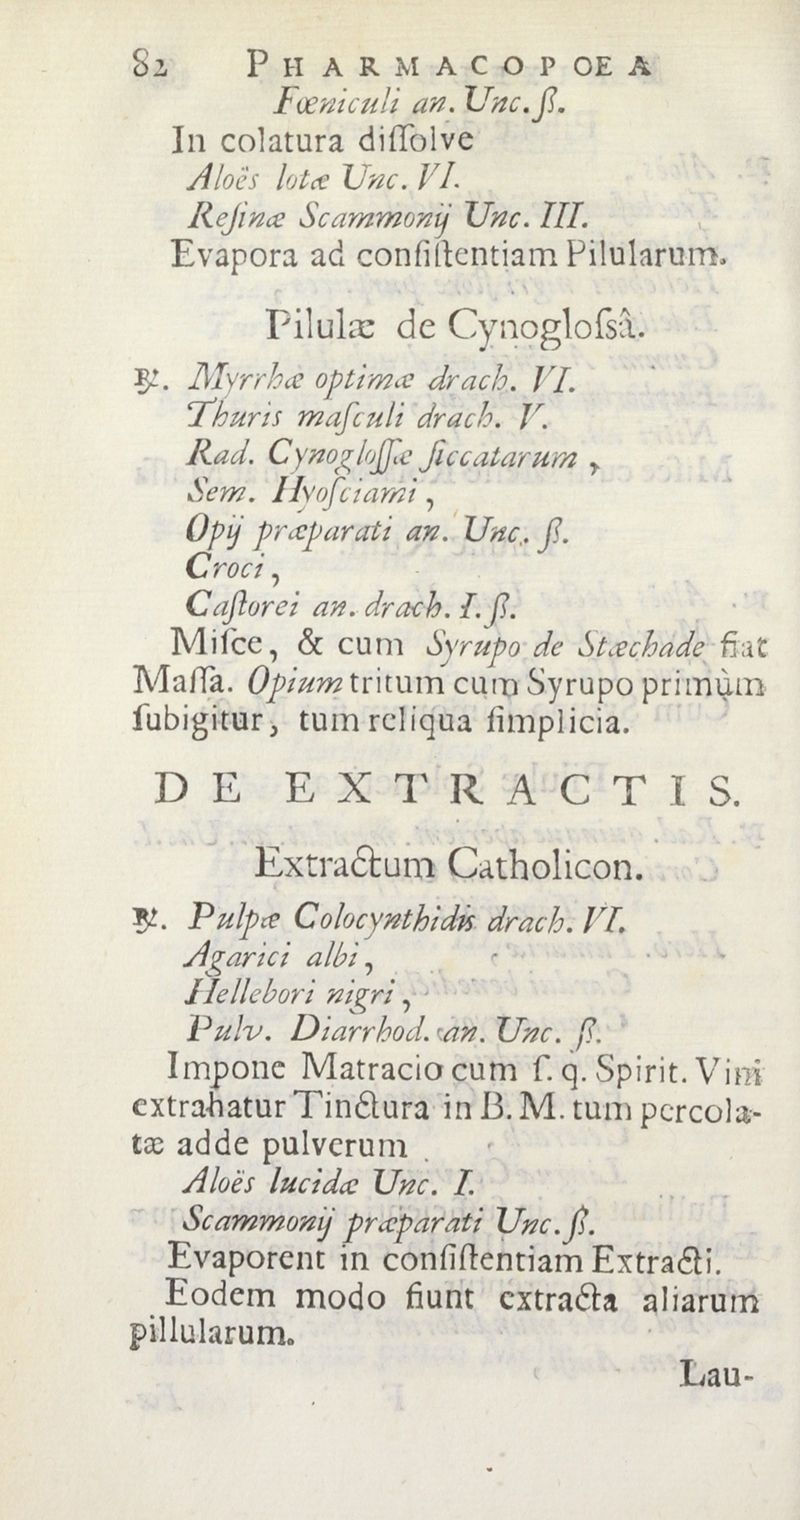 82 PHARMACOPOEA
Fœniculi an. Unc. ß.
In colatura diſſolve
Aloës lotæ Unc. VI.
Reſinæ Scammonij Unc. III.
Evapora ad conſiſtentiam Pilularum.
Pilulæ de Cynogloſsâ.
℞. Myrrhæ optimæ drach. VI.
Thuris maſculi drach. V.
Rad. Cynogloſſæ ſiccatarum,
Sem. Hyoſciami,
Opij præparati an. Unc. ß.
Croci,
Caſtorei an. drach. I. ß.
Miſce, & cum Syrupo de Stæchade fiat
Maſſa. Opium tritum cum Syrupo primùm
ſubigitur, tum reliqua ſimplicia.
DE EXTRACTIS.
Extractum Catholicon.
℞. Pulpæ Colocynthidis drach. VI.
Agarici albi,
Hellebori nigri,
Pulv. Diarrhod. an. Unc. ß.
Impone Matracio cum ſ. q. Spirit. Vini
extrahatur Tinctura in B. M. tum percola-
tæ adde pulverum
Aloës lucidæ Unc. I.
Scammonij præparati Unc. ß.
Evaporent in conſiſtentiam Extracti.
Eodem modo fiunt extracta aliarum
pillularum.
Lau-